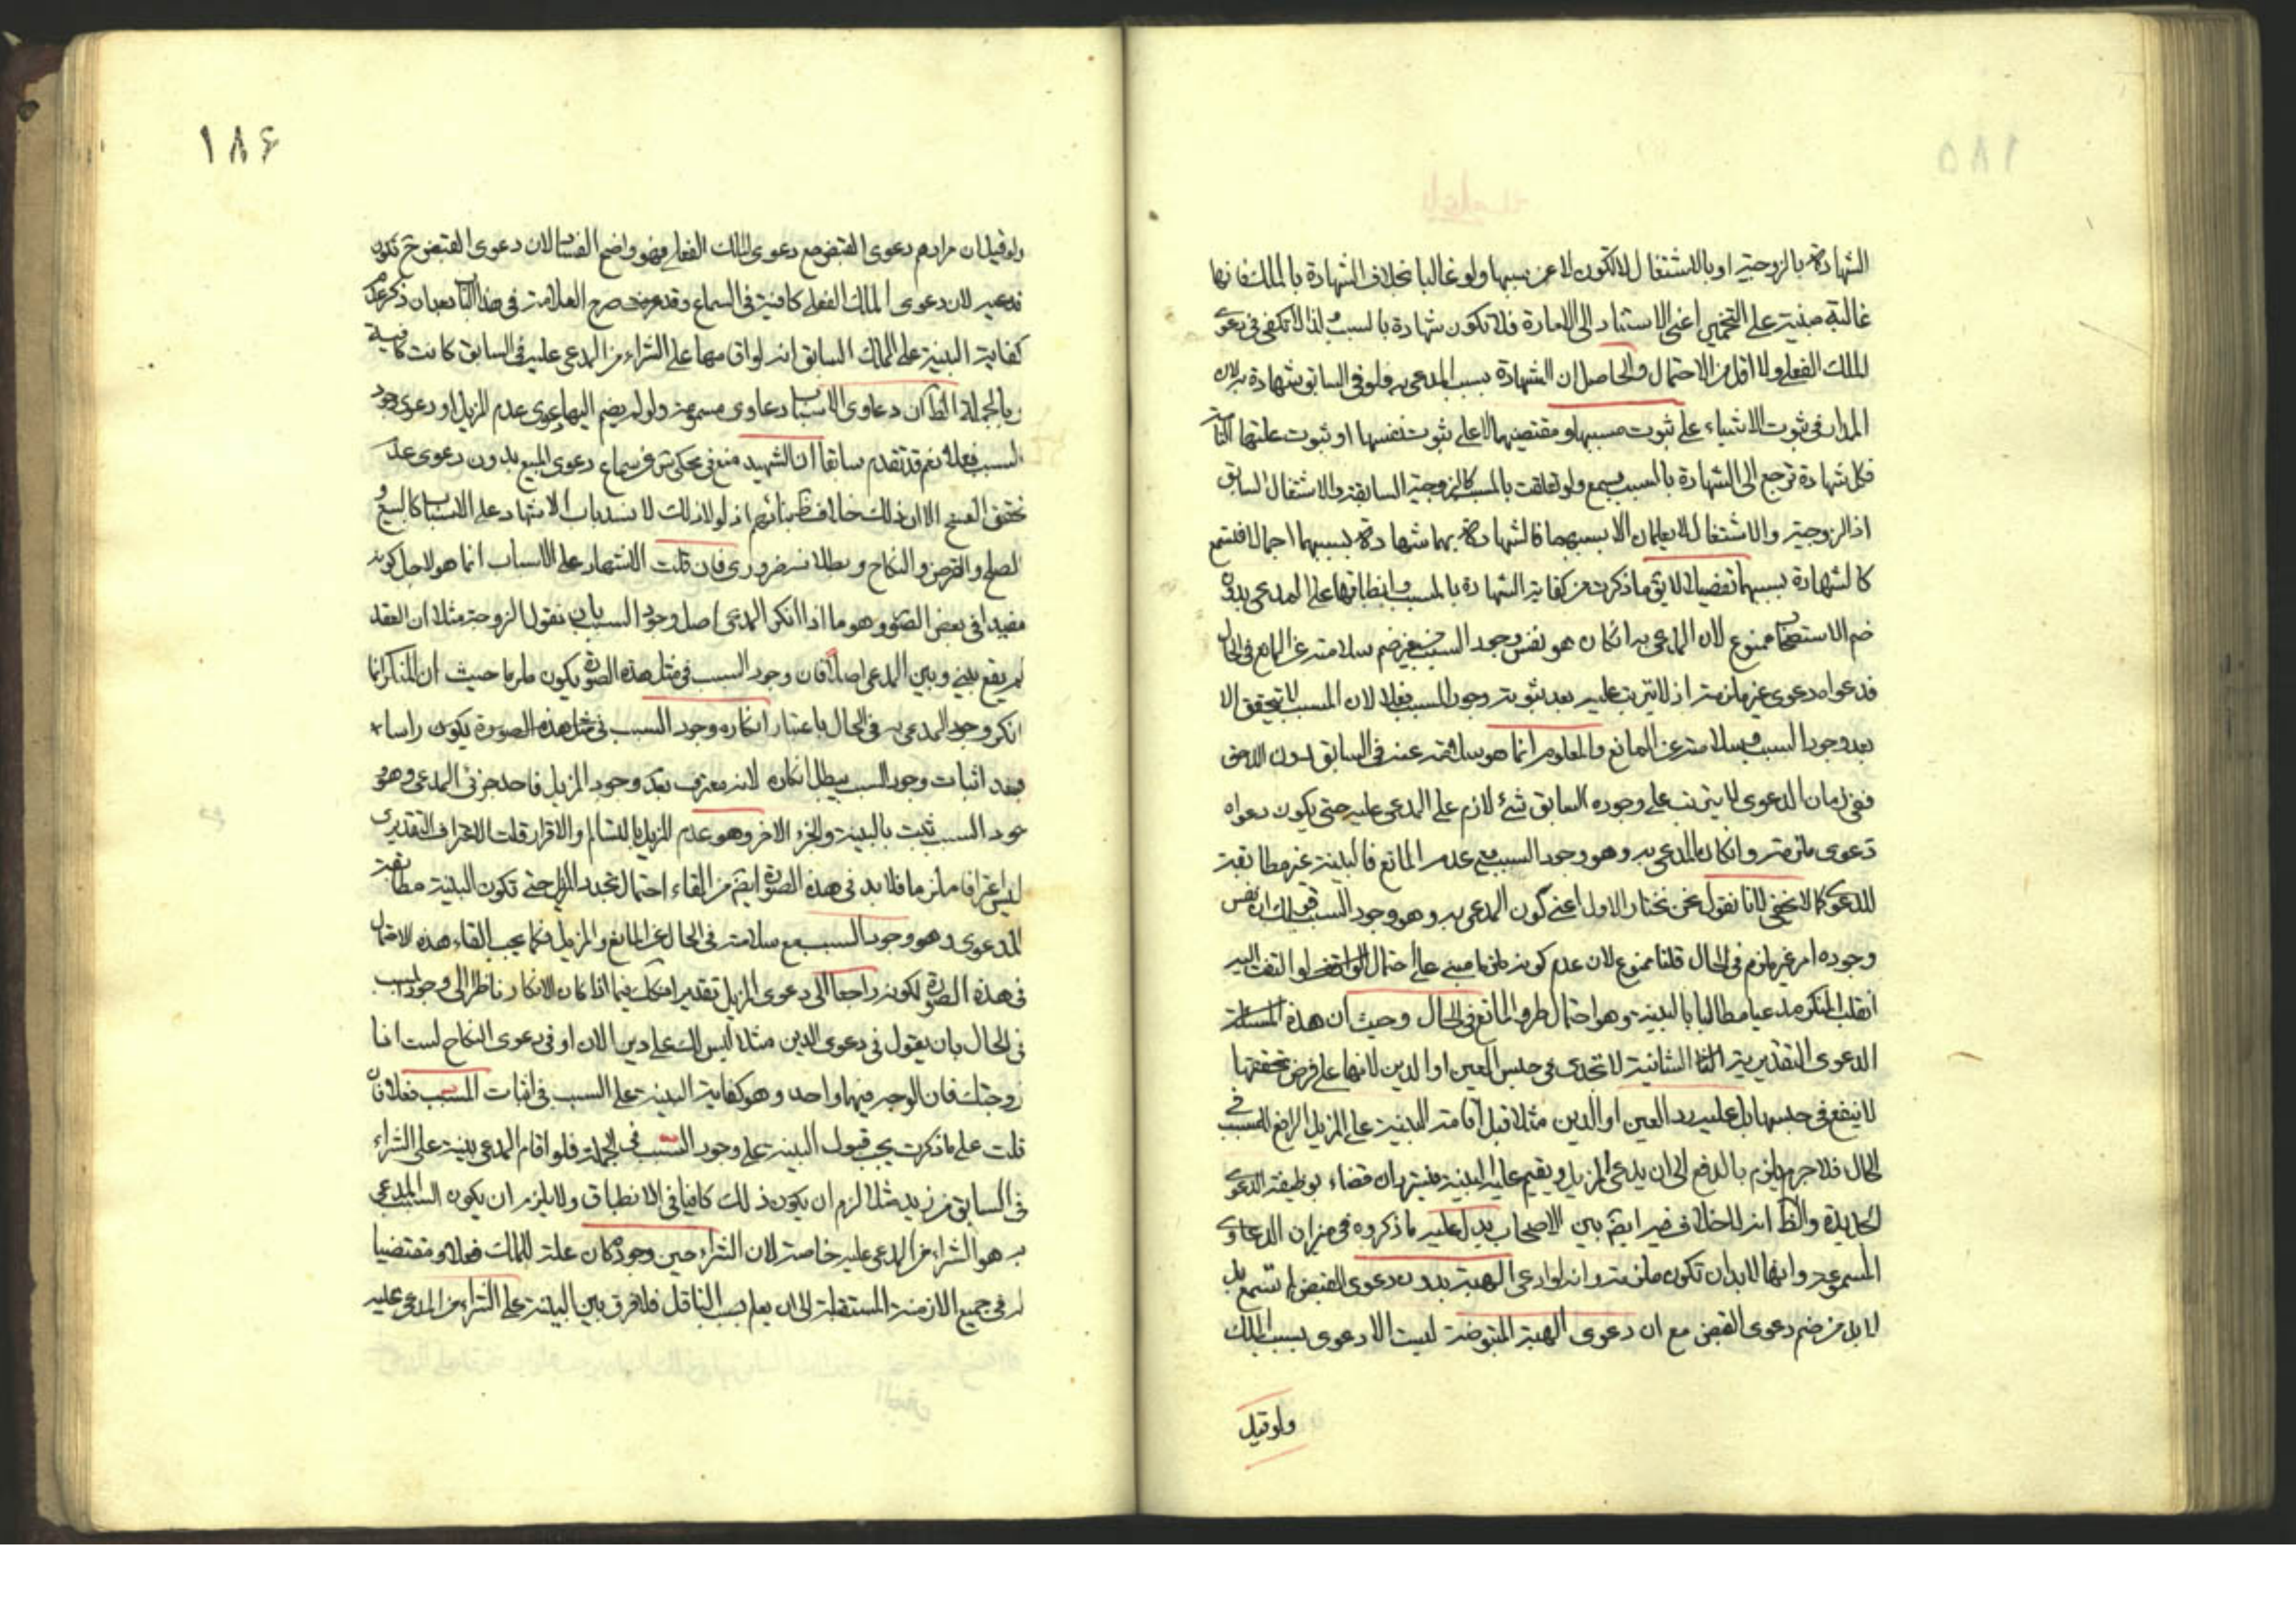 الشهادة بالزوجية او بالاشتغال لا تكون الا عن سببها ولو غالبا بخلاف الشهادة بالملك فانها
غالبة مبنية على التخمين اعنى الاستناد الى الامارة فلا تكون شهادة بالسبب ولذا لا تكفى فى دعوى
الملك الفعلى ولا اقل من الاحتمال والحاصل ان الشهادة بسبب المدعى به فلو فى السابق شهادة به لان
المدار فى ثبوت الاشياء على ثبوت مسببها ومقتضيها لا على ثبوت نفسها او ثبوت علتها التامة
فكل شهادة ترجع الى الشهادة بالسبب يسمع ولو تعلقت بالمسبب كالزوجية السابقة والاشتغال السابق
اذ الزوجية والاشتغال لا يعلمان الا بسببهما فالشهادة بهما شهادة بسببهما اجمالا فتسمع
كالشهادة بسببهما تفصيلا لا يق ما ذكرت من كفاية الشهادة بالمسبب وانطباقها على المدعى بدون
ضم الاستصحاب ممنوع لان المدعى به ان كان هو نفس وجود السبب من غير ضم سلامته عن المانع فى الحال
فدعواه دعوى غير ملزمة اذ لا يترتب عليه بعد ثبوته وجود المسبب فعلا لان المسبب لا يتحقق الا
بعد وجود السبب وسلامته عن المانع والمعلوم انما هو سلامته عنه فى السابق دون اللاحق
ففى زمان الدعوى لا يترتب على وجوده السابق شئ لازم على المدعى عليه حتى يكون دعواه
دعوى ملزمة وان كان المدعى به وهو وجود السبب مع عدم المانع فالبينة غير مطابقة
للدعوى كما لا يخفى لانا نقول نحن نختار الاول اعنى كون المدعى به وهو وجود السبب قولك ان نفس
وجوده امر غير ملزم فى الحال قلنا ممنوع لان عدم كونه ملزما مبنى على احتمال لو التفت اليه
انقلب المنكر مدعيا مطالبا بالبينة وهو احتمال طرو المانع فى الحال وحيث ان هذه المسئلة
الدعوى التقديرية الثانية لا تجدى فى حبس العين او الدين لانها على فرض تحققها
لا ينفع فى حبسها بل عليه رد العين او الدين مثلا قبل اقامة البينة على المزيل الرافع للمسبب فى
الحال فلا جرم يلزم بالدفع الى ان يدعى المزيل ويقيم عليه البينة فيسترد ان قضاء بوظيفة الدعوى
الجديدة والظ انه لا خلاف فيه ايضم بين الاصحاب يدل عليه ما ذكروه فى ميزان الدعاوى
المسموعة وانها لا بد ان تكون ملزمة وانه لو ادعى الهبة بدون دعوى القبض لم تسمع بل
لا بد من ضم دعوى القبض مع ان دعوى الهبة المقبوضة ليست الا دعوى بسبب الملك
ولو قيل
١٨٦
ولو قيل ان مرادهم دعوى القبض مع دعوى الملك الفعلى فهو واضح الفساد لان دعوى القبض ح تكون
لان دعوى الملك الفعلى كافية فى السماع وقد صرح العلامة فى هذا الباب بعد ان ذكر عدم
كفاية البينة على الملك السابق انه لو اقامها على الشراء من المدعى عليه فى السابق كانت كافية
وبالجملة الظ ان دعاوى الاسباب دعاوى مسموعة ولو لم يضم اليها دعوى عدم المزيل او دعوى وجود
المسبب فعلا نعم قد تقدم سابقا ان الشهيد منع فى محكى عن سماع دعوى البيع بدون دعوى عدم
تحقق الفسخ الا ان ذلك خلاف اذ لولا ذلك لانسد باب الاشهاد على الاسباب كالبيع و
لصلح والقرض والنكاح وبطلانه ضرورى فان قلت الاشهاد على الاسباب انما هو لاجل كونه
مفيدا فى بعض الصور وهو ما اذا انكر المدعى اصل وجود السبب بان يقول الزوجة مثلا ان العقد
لم يقع بينى وبين المدعى اصلا فان وجود السبب فى مثل هذه الصورة يكون ملزما حيث ان المنكر انما
انكر وجود المدعى به فى الحال باعتبار انكاره وجود السبب فى مثل هذه الصورة يكون راسا
فبعد اثبات وجود السبب يبطل انكاره لانه معترف بعد وجود المزيل فاحد جزئى المدعى وهو
جود السبب يثبت بالبينة والجزء الاخر وهو عدم المزيل بالتسالم والاقرار قلت الاعتراف التقديرى
ليس اعترافا ملزما فلا بد فى هذه الصورة ايضم من القاء احتمال تجدد المزيل حتى تكون البينة مطابقة
للدعوى وهو وجود السبب مع سلامته فى الحال عن المانع والمزيل فكما يجب القاء هذه الاحتمال
فى هذه الصورة لكونه راجعا الى دعوى المزيل تقديرا فكك فيما اذا كان الانكار ناظرا الى وجود المسبب
فى الحال بان يقول فى دعوى الدين مثلا ليس لك على دين الان او فى دعوى النكاح لست انا
زوجتك فان الوجه فيهما واحد وهو كفاية البينة على السبب فى اثبات المسبب فعلا فان
قلت على ما ذكرت يجب قبول البينة على وجود السبب فى الجملة فلو اقام المدعى بينة على الشراء
فى السابق من زيد مثلا لزم ان يكون ذلك كافيا فى الانطباق ولا يلزم ان يكون السبب المدعى
به هو الشراء من المدعى عليه خاصة لان الشراء حين وجوده كان علة للملك فعلا ومقتضيا
له فى جميع الازمنة المستقبلة الى ان يعلم بسبب الناقل فلا فرق بين البينة على الشراء من المدعى عليه